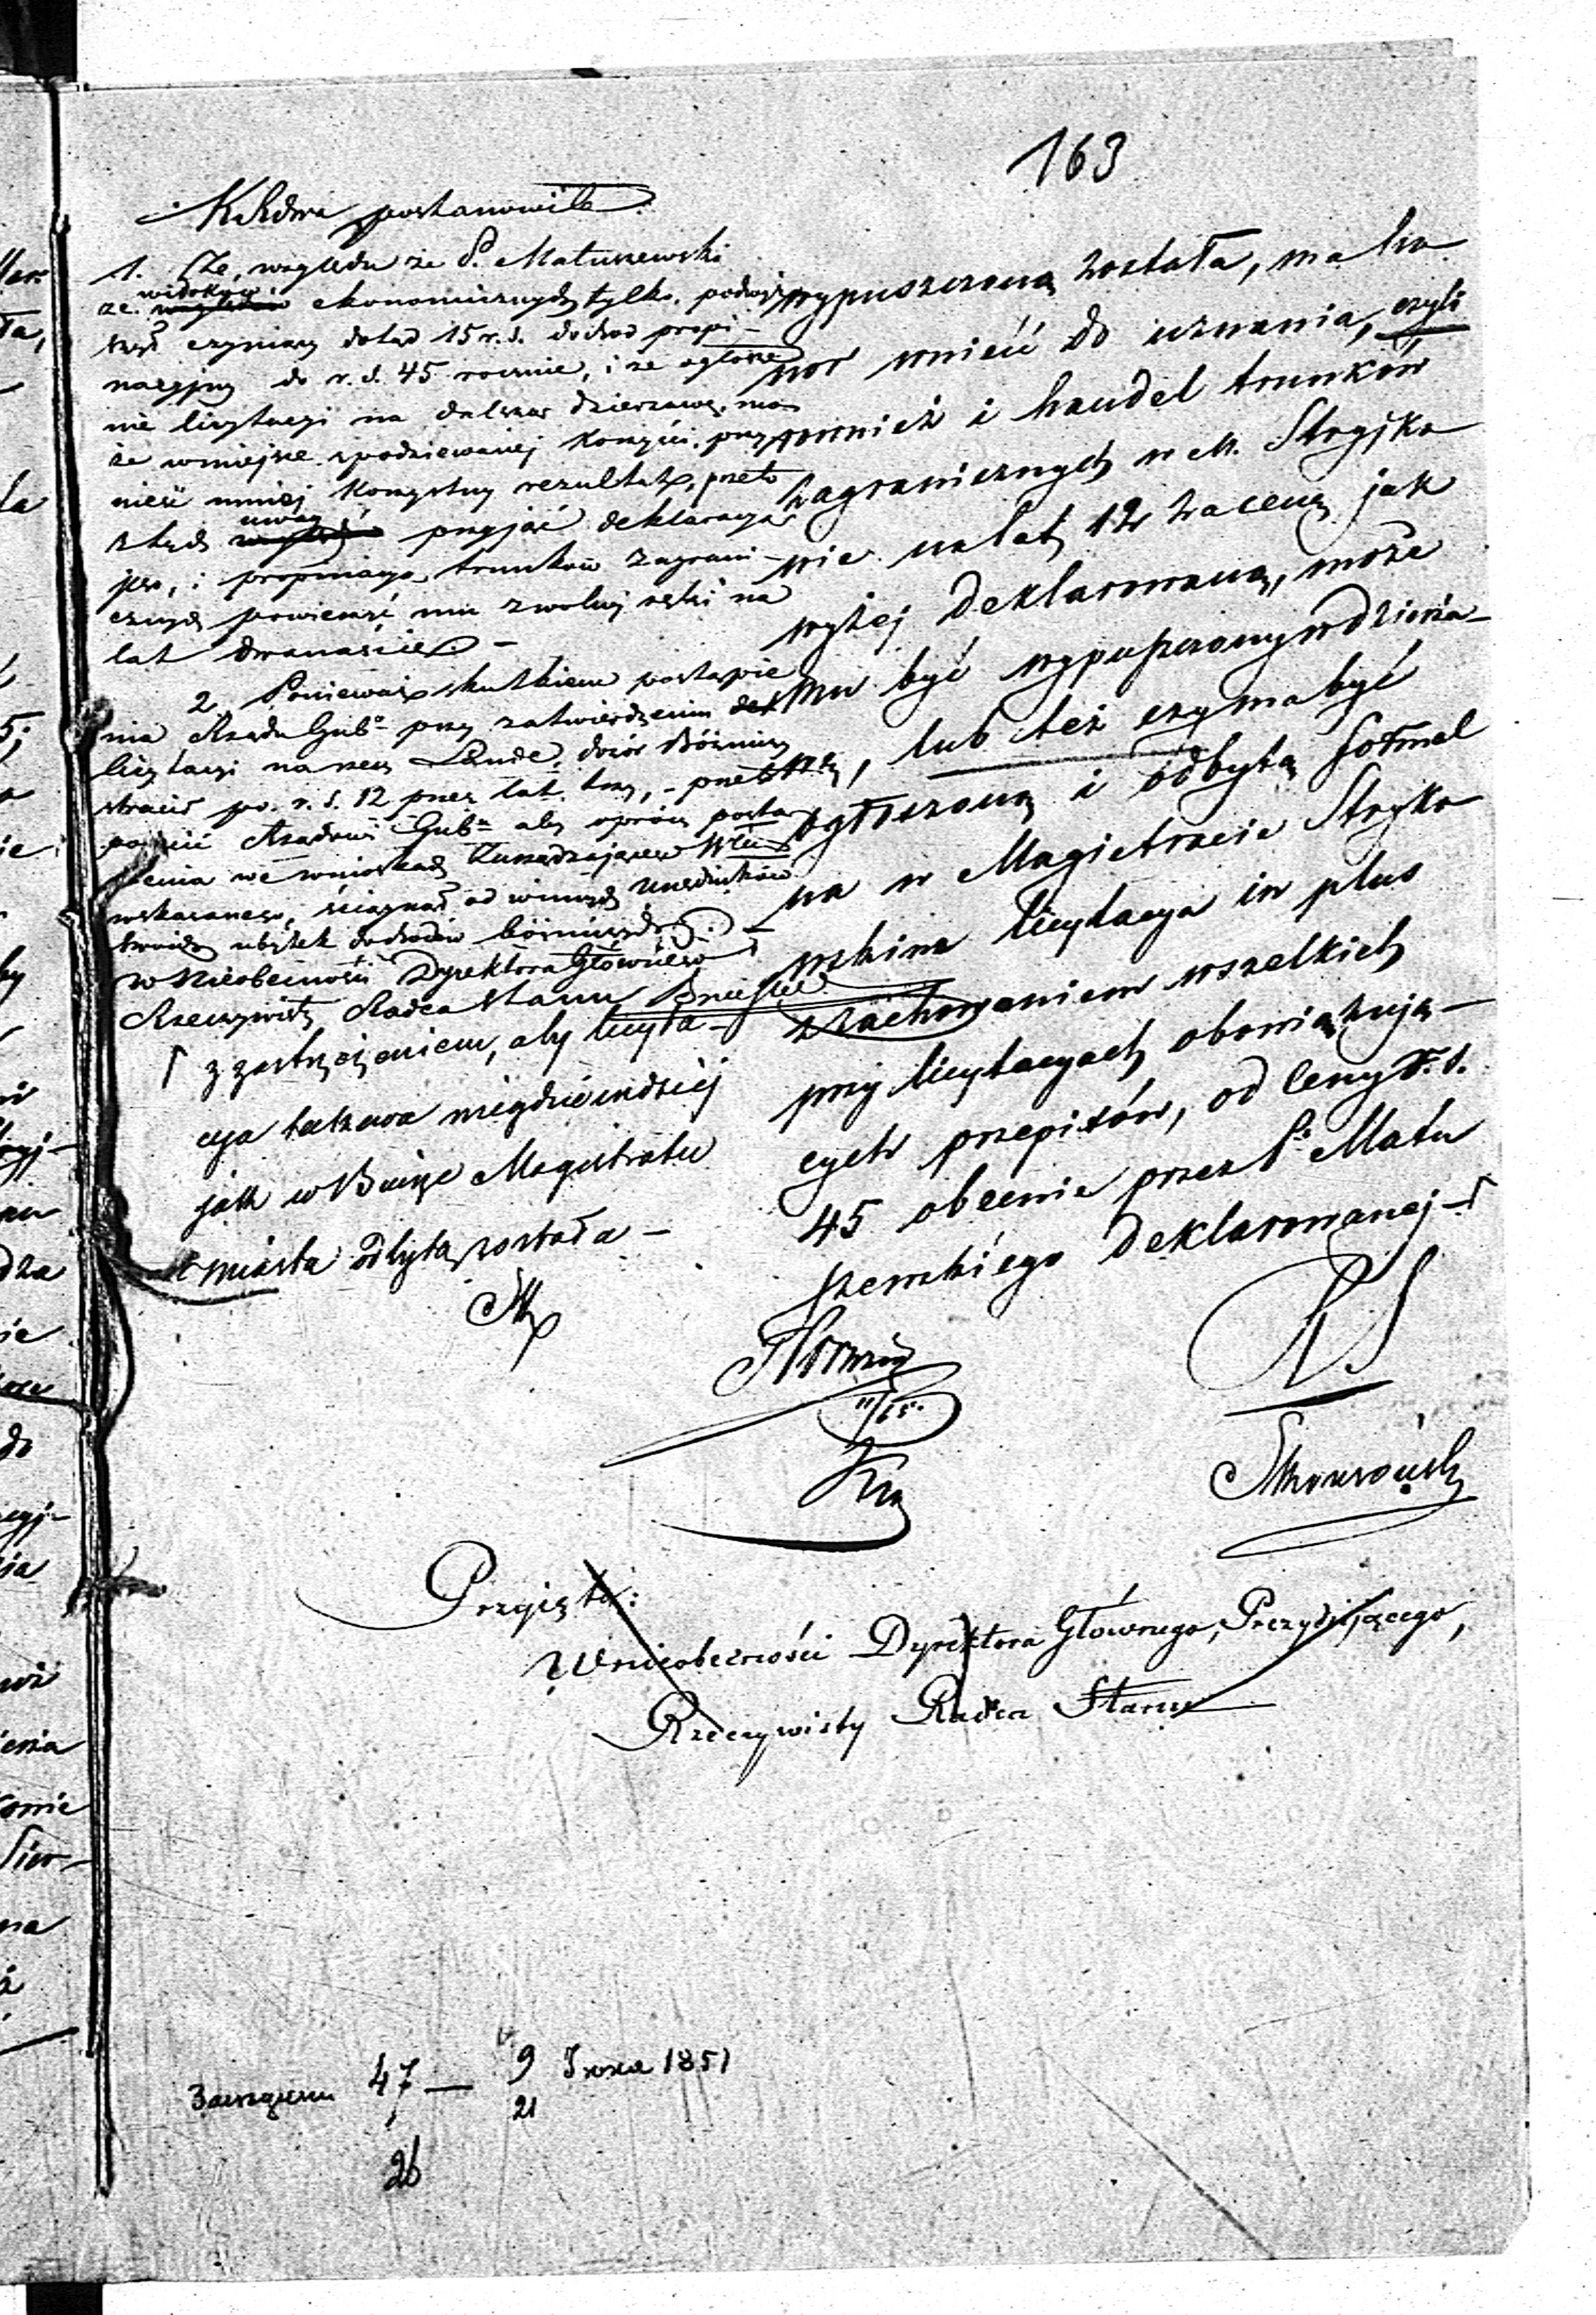 163
K. Rdwa postanowiła
1. Ze względu że P. Matuszewski
ze widoków ekonomicznych tylko, podwyż
szył czyniący dotąd 15 r. s. dochód propi-
nacyjny do r. s. 45 rocznie, i że ogłosze
nie licytacyi na dalszą dzierżawę, mo
że w miejsce spodziewanej korzyści, przy
nieść mniej korzystny rezultat, przeto
z tych uwag przyjąć deklaracyą
jego, i propinacyą trunków zagrani-
cznych powierzyć mu z wolnej ręki na
lat dwanaście. -
2. Ponieważ skutkiem postąpie
nia Rządu Gub. przy zatwierdzeniu
licytacyi na rzecz Lande, dozór Bóżniczy
stracił po r. s. 12 przez lat trzy, - przeto
polecić Rządowi Gub. aby oprócz postą
pienia we wnioskach
wskazanego, ściągnął od winnych Urzędników
ubytek dochodów bóżniczych. -
w Nieobecności Dyrektora Głównego
Rzeczywisty Radca Stanu
z zastrzeżeniem, aby licyta-
cya takowa nigdzie indziej
jak w Biurze Magistratu
miasta odbytą została -
wypuszczoną została, ma ho
nor wnieść do uznania, czyli
również i handel trunków
zagranicznych w m. Stryjko
wie na lat 12 za cenę jak
wyżej deklarowaną, może
mu być wypuszczony w dzierża-
wę, lub też czy ma być
ogłoszoną i odbytą formal
na w Magistracie Stryko
wskim licytacya in plus
z zachowaniem wszelkich
przy licytacyach obowiązują-
cych przepisów, od ceny r. s.
45 obecnie przez P. Matu
szewskiego deklarowanej -
11/65.
Przyjęto:
W nieobecności Dyrektora Głównego, Prezydującego,
Rzeczywisty Radca Stanu
47 — 9 Іюня 1851
21
26